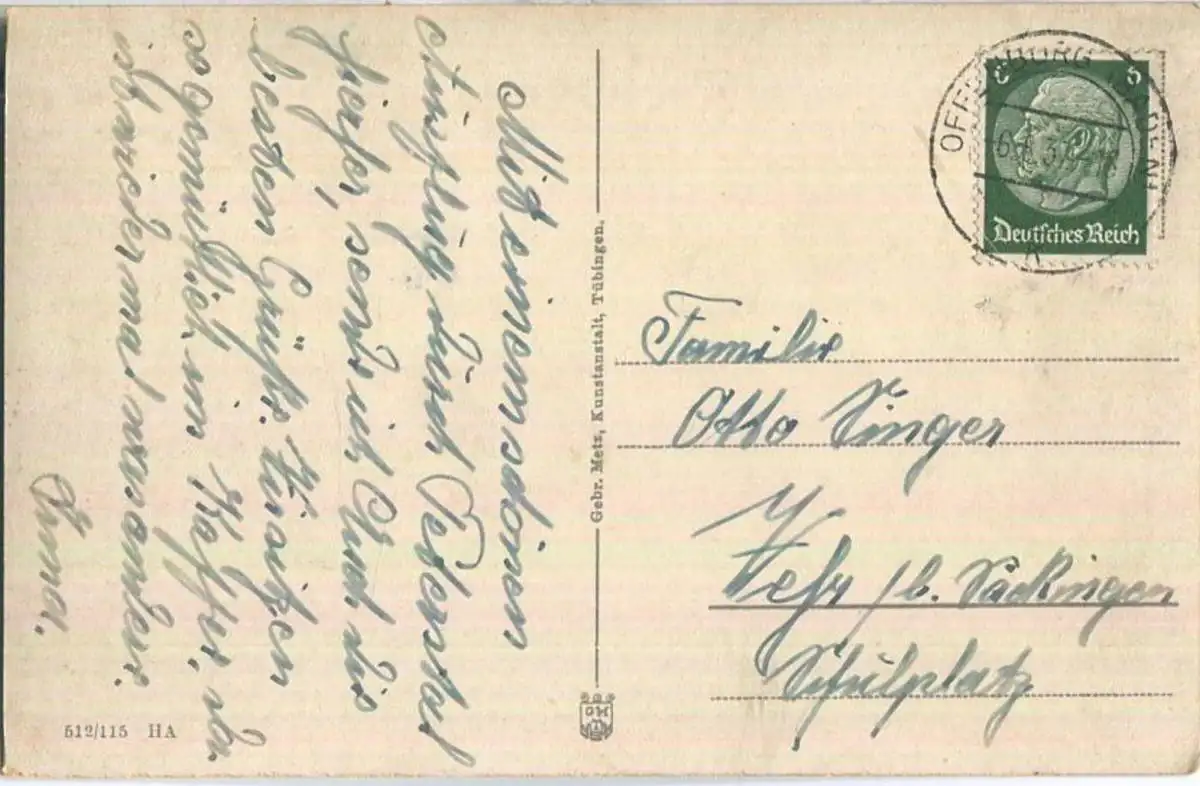 Mit einem schönen
Ausflug durch Peterstal
hierher, sende ich Euch die
besten Grüße. Wir sitzen
so gemütlich im Kaffee, u.
wieder mal
Irma.
512/115 HA
Gebr. Metz, Kunstanstalt, Tübingen.
OFFENBURG
6
6
Deutsches Reich
Familie
Otto Singer
Wehr /b. Säckingen
Schulplatz